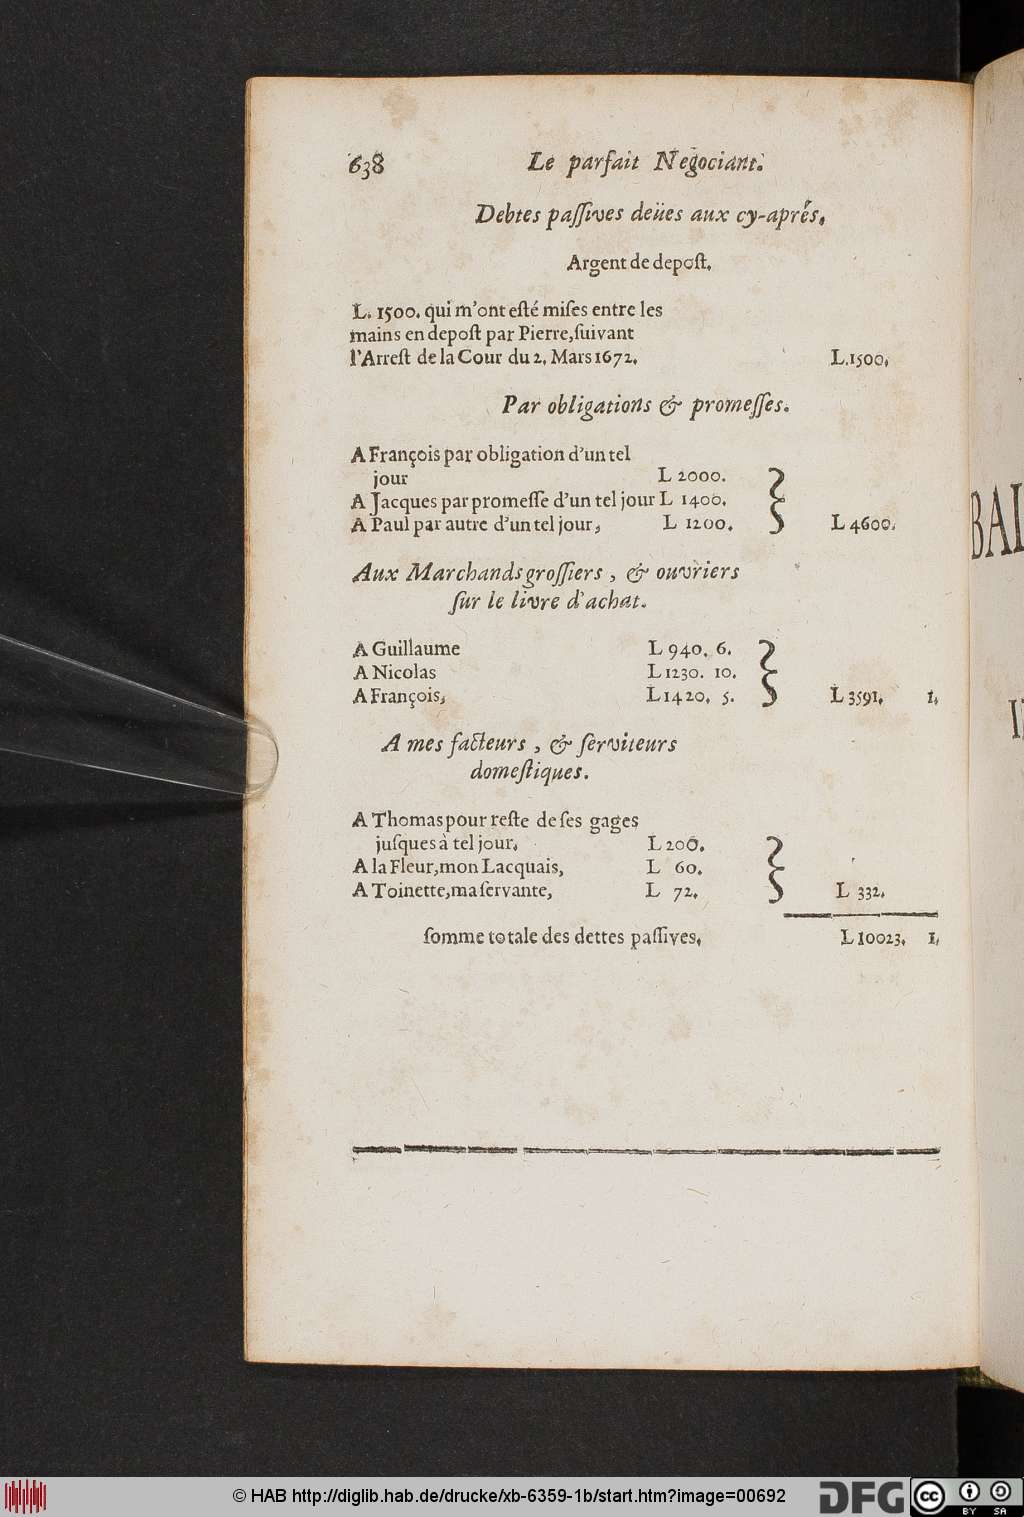 638 Le parfait Negociant.
Debtes paſſives deües aux cy-aprés.
Argent de depoſt.
L. 1500. qui m'ont eſté miſes entre les
mains en depoſt par Pierre, ſuivant
l'Arreſt de la Cour du 2. Mars 1672. L. 1500.
Par obligations & promeſſes.
A François par obligation d'un tel
jour L 2000.
A Jacques par promeſſe d'un tel jour L 1400.
A Paul par autre d'un tel jour, L 1200. L 4600.
Aux Marchands groſſiers, & ouvriers
ſur le livre d'achat.
A Guillaume L 940. 6.
A Nicolas L 1230. 10.
A François, L 1420. 5. L 3591. 1.
A mes facteurs, & ſerviteurs
domeſtiques.
A Thomas pour reſte de ſes gages
juſques à tel jour. L 200.
A la Fleur, mon Lacquais, L 60.
A Toinette, ma ſervante, L 72. L 332.
ſomme totale des dettes paſſives. L 10023. 1.
BAL
© HAB http://diglib.hab.de/drucke/xb-6359-1b/start.htm?image=00692
DFG
cc BY SA